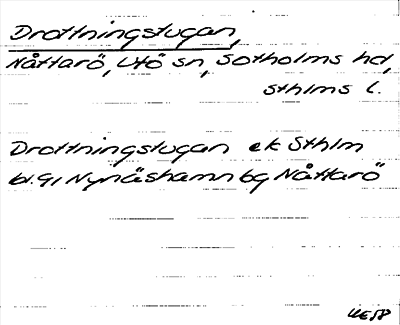 Drottningstugan,
Nåttarö, Utö sn, Sotholms hd,
sthlms l.
Drottningstugan ek Sthlm
bl. 91 Nynäshamn bg Nåttarö
UESP